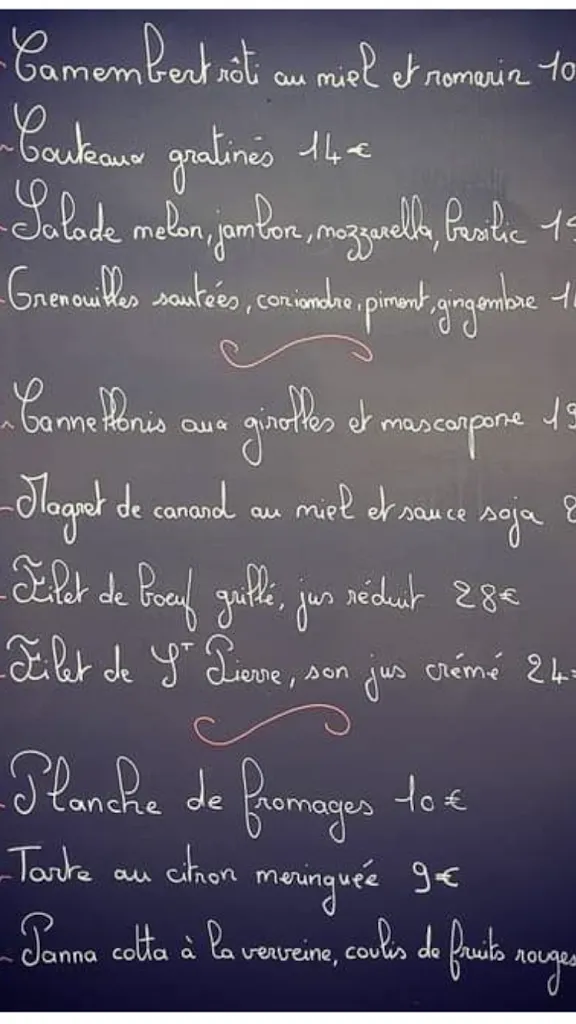 - Camembert rôti au miel et romarin 10
- Couteaux gratinés 14€
- Salade melon, jambon, mozzarella, basilic 1
- Grenouilles sautées, coriandre, piment, gingembre 1
- Cannellonis aux girolles et mascarpone 19
- Magret de canard au miel et sauce soja 2
- Filet de boeuf grillé, jus réduit 28€
- Filet de St Pierre, son jus crémé 24€
- Planche de fromages 10€
- Tarte au citron meringuée 9€
- Panna cotta à la verveine, coulis de fruits rouges